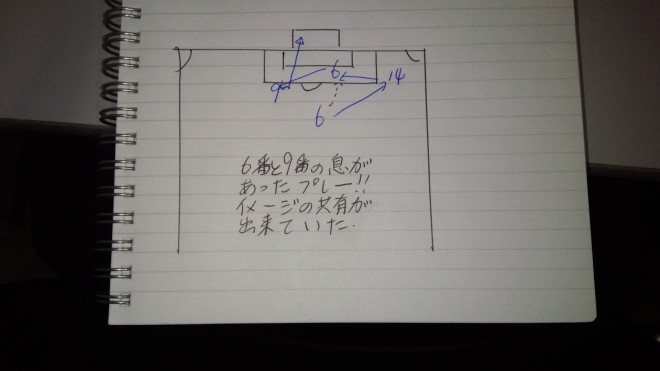 6
14
9
6
6番と9番の息が
あったプレー!!
イメージの共有が
出来ていた.